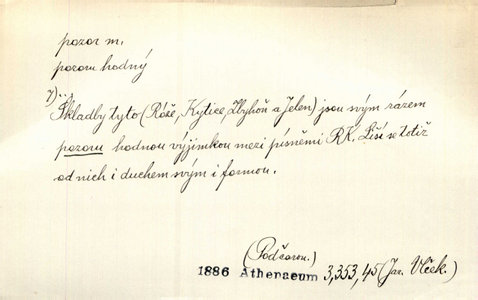 pozor m.
pozoru hodný
γ)...
Skladby tyto (Róže, Kytice, Zbyhoň a Jelen) jsou svým rázem
pozoru hodnou výjimkou mezi písněmi RK. Liší se totiž
od nich i duchem svým i formou.
(Podčarou.)
1886 Athenaeum 3,353,45 (Jar. Vlček.)